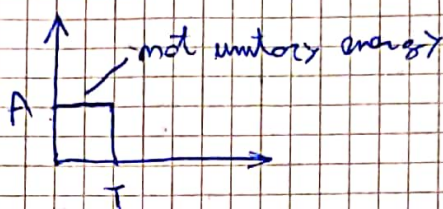 not unitary energy
A
T